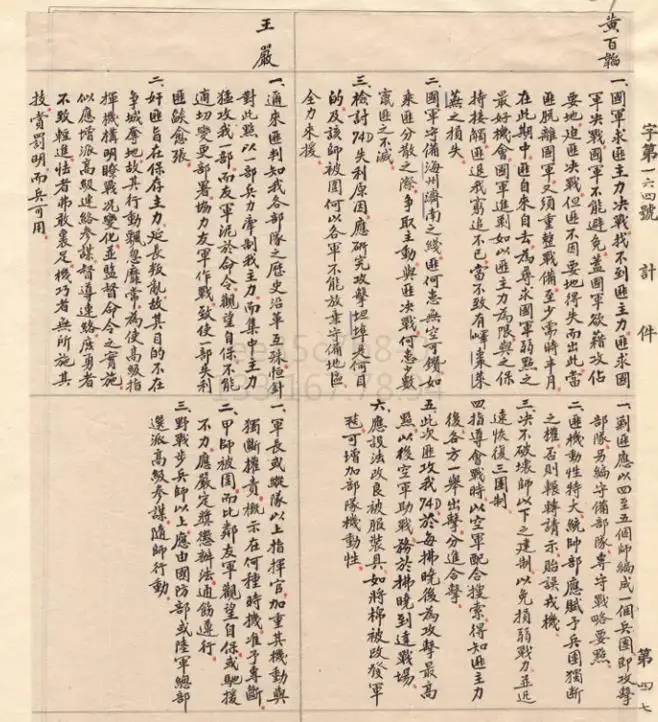 字第一六四號　計　件　第　四七
黃百韜
一、國軍求匪主力決戰找不到匪主力、匪求國
軍決戰國軍不能避免、蓋國軍欲藉攻佔
要地迫匪決戰、但匪不因要地得失而出此、當
匪脫離國軍又須重整戰備至少需時半月、
在此期中匪自來自去為尋求國軍弱點之
最好機會、國軍進剿如以匪主力為限與之保
持接觸、匪退我窮追不已、當不致有嶧棗萊
蕪之損失、
二、國軍守備海州濟南之綫、匪何患無空可鑽、如
乘匪分散之際爭取主動與匪決戰何患少數
竄匪之不滅、
三、檢討74D失利原因、應研究攻擊坦埠是何目
的、及該師被圍何以各軍不能放棄守備地區
全力來援、
一、剿匪應以四至五個師編成一個兵團即攻擊
部隊、另編守備部隊專守戰略要點、
二、匪機動性特大、統帥部應賦予兵團獨斷
之權否則輾轉請示貽誤戎機
三、決不破壞師以下之建制、以免損弱戰力、並迅
速恢復三團制
四、指導會戰時以空軍配合搜索、得知匪主力
後各方一舉出擊分進合擊
五、此次匪攻我74D於每拂曉後為攻擊最高
點、以後空軍助戰務於拂曉到達戰場、
六、應設法改良被服裝具、如將棉被改發軍
毯可增加部隊機動性
王嚴
一、邇來匪判知我各部隊之歷史沿革互殊、恒針
對此點以一部兵力牽制我主力、而集中主力
猛攻我一部、而友軍泥於命令、觀望自保、不能
適切變更部署協力友軍作戰、致使一部失利
匪燄愈張、
二、奸匪旨在保存主力、延長叛亂、故其目的不在
爭城奪地、故其行動飄忽靡常、為使高級指
揮機構明瞭戰況變化、並監督命令之實施、
似應增派高級連絡參謀、督導連絡、庶勇者
不致輕進、怯者弗敢裹足、機巧者無所施其
技、賞罰明而兵可用、
一、軍長或縱隊以上指揮官加重其機動與
獨斷權責、概示在何種時機准予專斷、
二、甲師被圍而比鄰友軍觀望自保、或馳援
不力、應嚴定獎懲辦法通飭遵行、
三、野戰步兵師以上應由國防部或陸軍總部
選派高級參謀隨師行動、